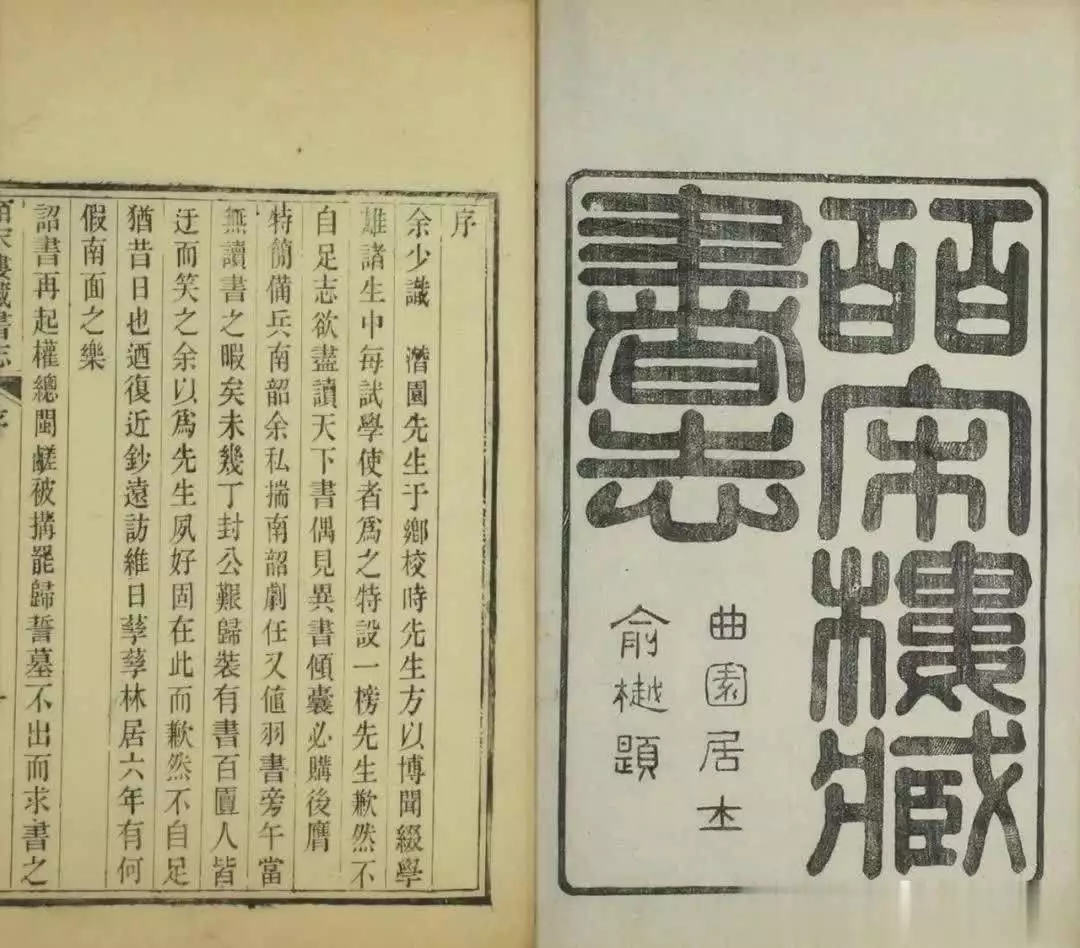 皕宋樓藏
書志
曲園居士
俞樾題
序
余少識　潛園先生于鄉校時先生方以博聞綴學
雄諸生中每試學使者爲之特設一榜先生歉然不
自足志欲盡讀天下書偶見異書傾囊必購後膺
特簡備兵南韶余私揣南韶劇任又值羽書旁午當
無讀書之暇矣未幾丁封公艱歸裝有書百匱人皆
迂而笑之余以爲先生夙好固在此而歉然不自足
猶昔日也迺復近鈔遠訪維日孳孳林居六年有何
假南面之樂
詔書再起權總閩鹺被搆罷歸誓墓不出而求書之
皕宋樓藏書志 序 一